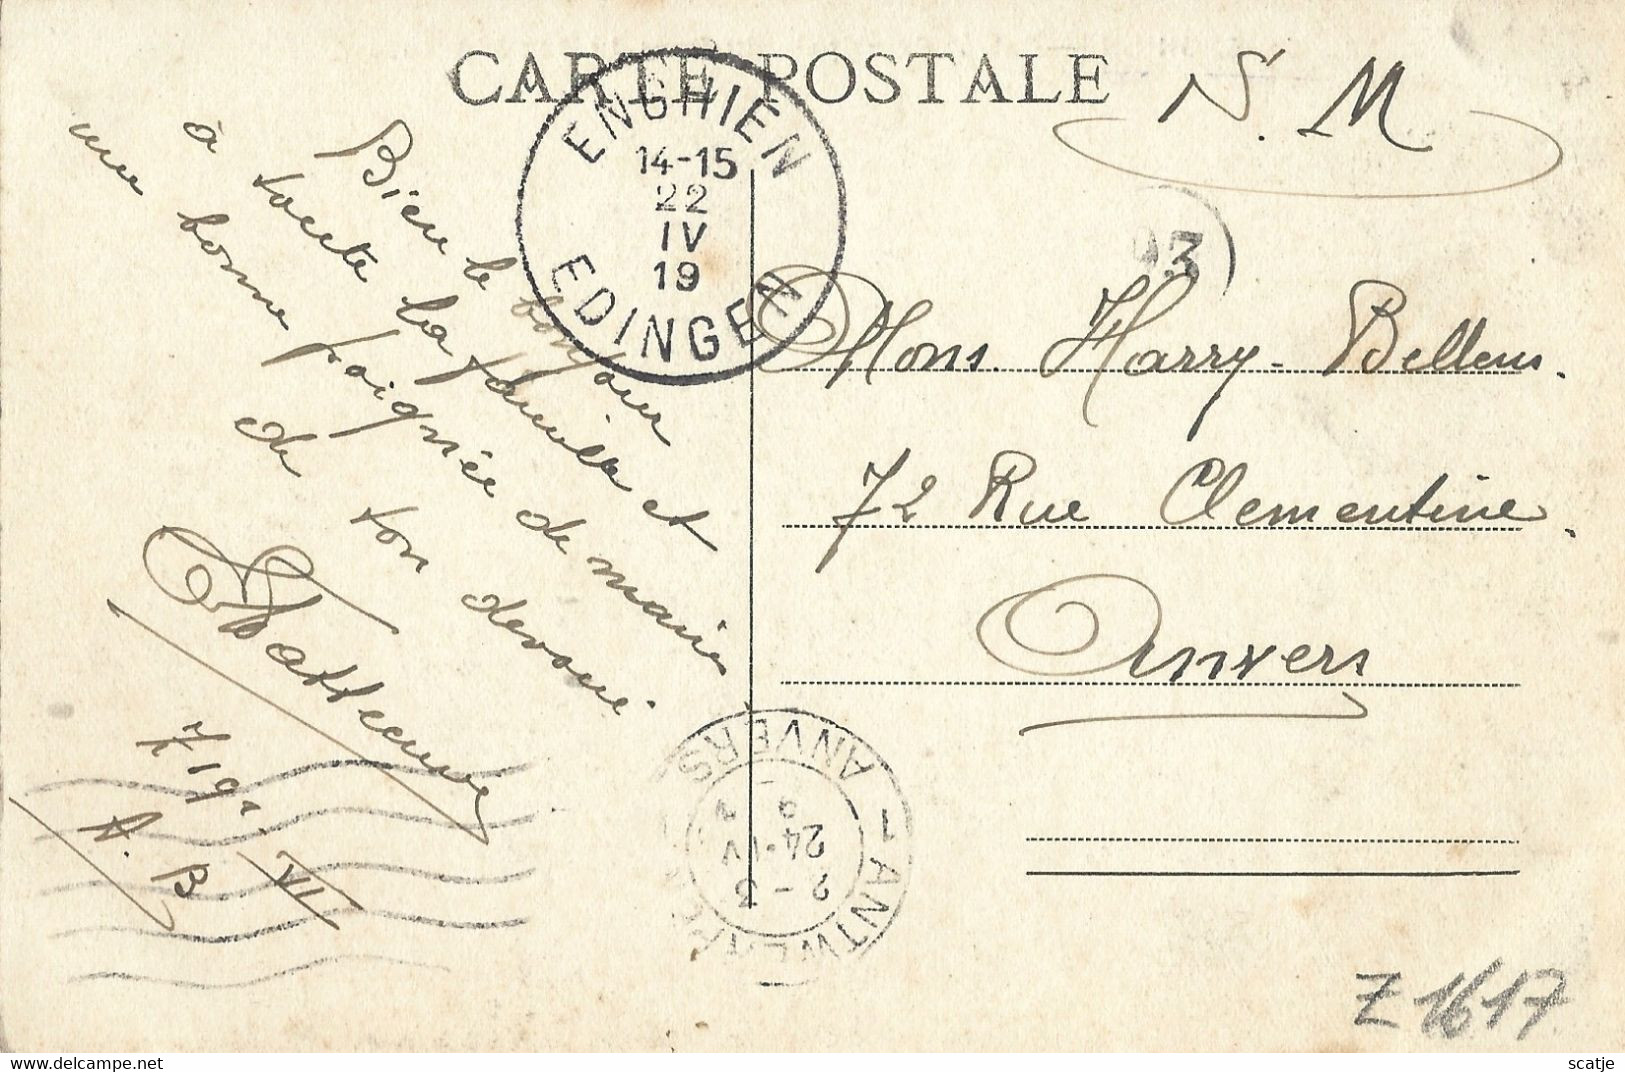 CARTE POSTALE
N. M.
ENGHIEN
14-15
22
IV
19
EDINGEN
Bien le bonjour
à toute la famille et
une bonne poignée de main
de ton devoué
Z 19.
A. B VI
Mons. Harry. Bellens.
72 Rue Clementine.
Anvers
1 ANTWERPEN ANVERS
2-3
24·IV
Z 1617
scatje